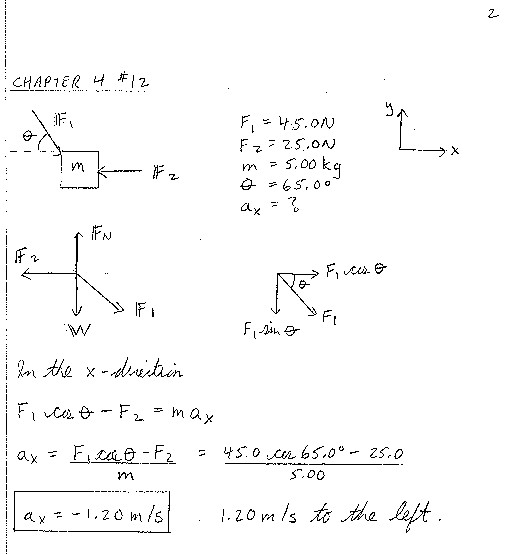 2
CHAPTER 4 #12
F₁
θ
m
F₂
F₁ = 45.0N
F₂ = 25.0N
m = 5.00 kg
θ = 65.0°
aₓ = ?
y
x
F_N
F₂
F₁
W
F₁ cos θ
θ
F₁ sin θ
F₁
In the x-direction
F₁ cos θ - F₂ = m aₓ
aₓ = (F₁ cos θ - F₂) / m = (45.0 cos 65.0° - 25.0) / 5.00
aₓ = -1.20 m/s . 1.20 m/s to the left.